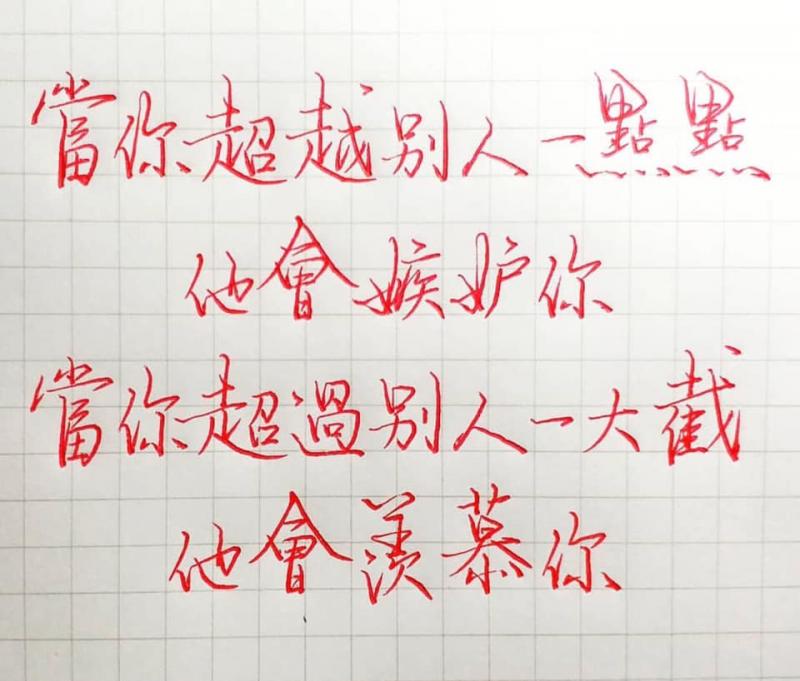 當你超越別人一點點
他會嫉妒你
當你超過別人一大截
他會羨慕你